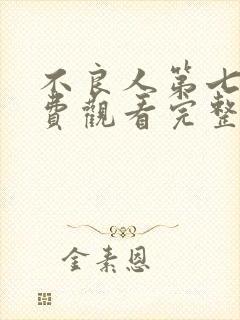 不良人第七
費觀看完整
金素恩